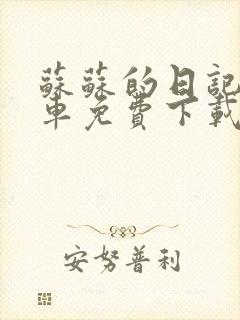 蘇蘇的日記
車免費下載
安努普利